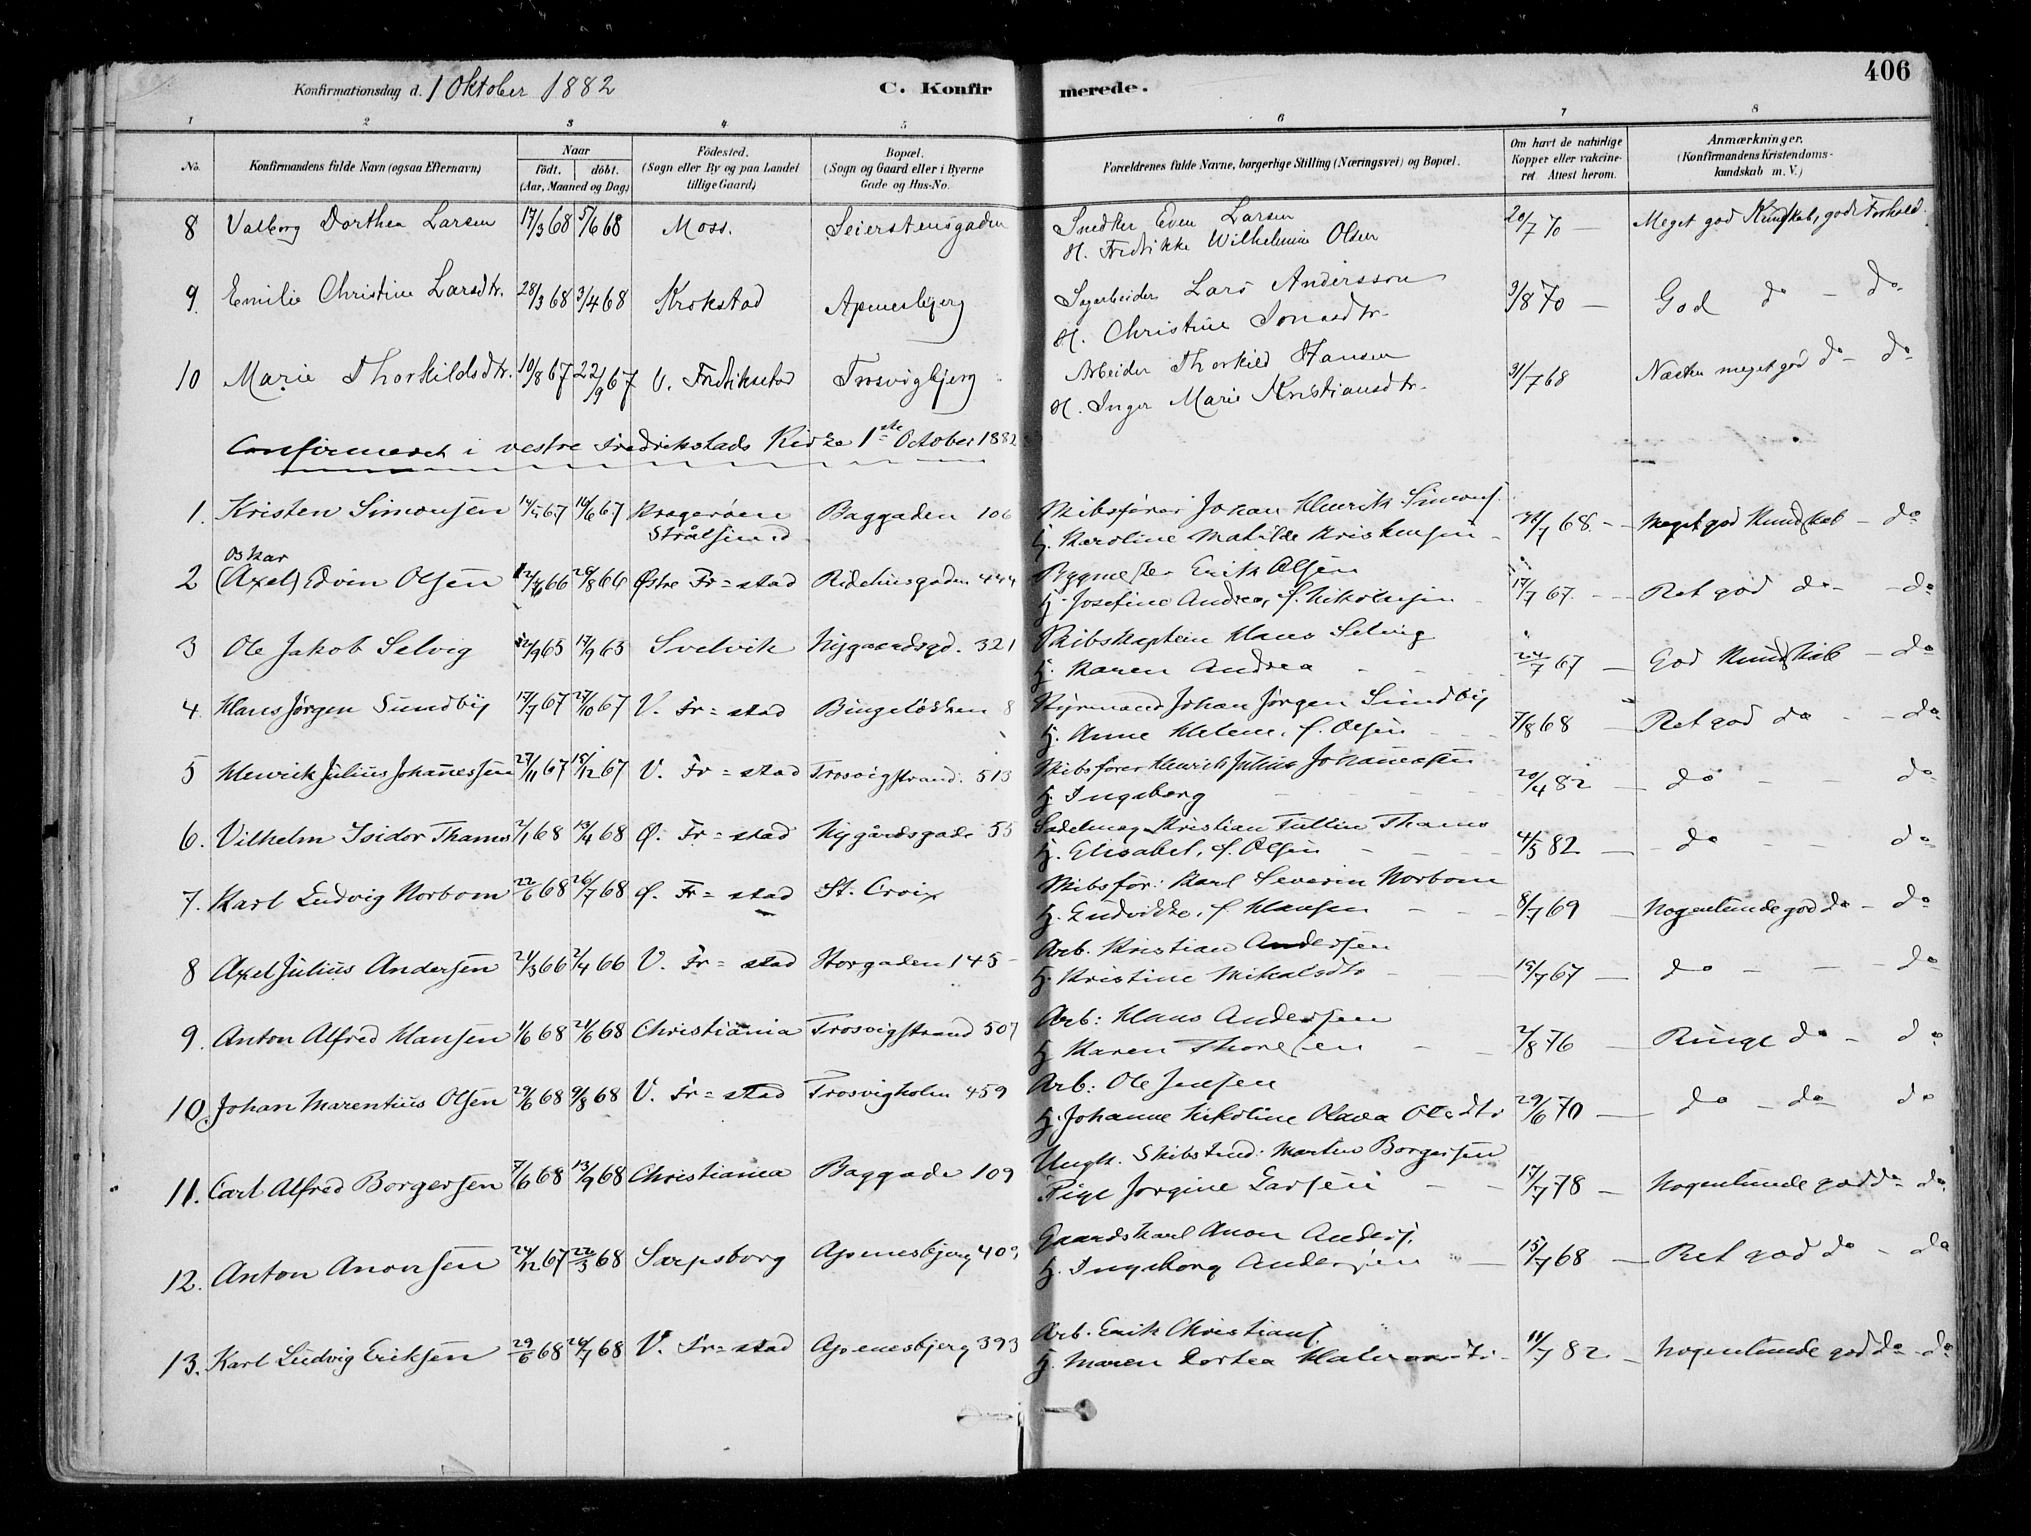 406
Konfirmationsdag d. 1 Oktober 1882 C. Konfirmerede.
1 2 3 4 5 6 7 8
No. Konfirmandens fulde Navn (ogsaa Efternavn) Naar födt. döbt. (Aar, Maaned og Dag) Födested. (Sogn eller By og paa Landet tillige Gaard) Bopæl. (Sogn og Gaard eller i Byerne Gade og Hus-No. Forældrenes fulde Navne, borgerlige Stilling (Næringsvei) og Bopæl. Om havt de naturlige Kopper eller vakcineret. Attest herom. Anmærkninger. (Konfirmandens Kristendomskundskab m. V.)
8 Valborg Dorthea Larsen 17/3 68 5/6 68 Moss. Seierstensgaden Snedker Even Larsen 20/7 70 — Meget god Kundskab, godt Forhold.
H. Fredrikke Wilhelmine Olsen
9. Emilie Christine Larsdtr. 28/3 68 3/4 68 Krokstad Apenesbjerg Sagarbeider Lars Andersson 3/8 70 — God do — do
H. Christine Jonasdtr.
10 Marie Thorkildsdtr. 10/8 67 22/9 67 V. Fredrikstad Trosvigbjerg Arbeider Thorkild Hansen 31/7 68 Næsten meget god do — do
H. Inger Marie Kristiansdtr.
Confirmeret i vestre Fredrikstads Kirke 1ste October 1882
1. Kristen Simonsen 14/5 67 16/6 67 Kragerøen Baggaden 106 Skibsfører Johan Henrik Simons. 31/7 68. — Meget god Kundskab — do
Strålsund H. Karoline Matilde Kristensen
Oskar
2 (Axel) Edvin Olsen 12/6 66 26/8 66 Østre Fr=stad Ridehusgaden 444 Bygmester Erik Olsen 17/7 67. — Ret god do — do
H. Josefine Andrea, f. Nikolaisen
3 Ole Jakob Selvig 2/9 65 17/9 65 Svelvik Nygaardsgd. 321 Skibskaptein Hans Selvig 24/7 67 — God Kundskab — do
H. Karen Andrea
4. Hans Jørgen Sundby 17/7 67 27/10 67 V. Fr=stad Bingeløkken 8 Styrmand Johan Jørgen Sundby 7/8 68 — Ret god do — do
H. Anne Helene, f. Olsen
5 Henrik Julius Johannessen 27/11 67 15/12 67 V. Fr=stad Trosvigstrand. 513 Skibsfører Henrik Julius Johannessen 20/4 82 — do — do
H. Ingeborg
6. Vilhelm Isidor Thams 2/1 68 13/4 68 Ø. Fr=stad Nygårdsgade 55 Sadelmag. Kristian Tullin Thams 4/5 82 — do — do
H. Elisabet, f. Olsen
7. Karl Ludvig Norbom 22/6 68 26/7 68 Ø. Fr=stad St. Croix Skibsfør: Karl Severin Norbom 8/7 69 — Nogenlunde god do — do
H. Ludvikke, f. Hansen
8 Axel Julius Andersen 21/3 66 2/4 66 V. Fr=stad Storgaden 145 Arb. Kristian Andersen 15/7 67 — do — do
H. Kristine Mikalsdtr
9. Anton Alfred Hansen 1/6 68 21/6 68 Christiania Trosvigstrand 507 Arb: Hans Andersen 2/8 76 — Ringe do — do
H. Karen Thoresen
10. Johan Marentius Olsen 29/6 68 9/8 68 V. Fr=stad Trosvigholm 459 Arb: Ole Jensen 29/6 70 — do — do do
H. Johanne Nikoline Olava Olsdtr
11. Carl Alfred Borgersen 7/6 68 13/9 68 Christiania Baggade 109 Ungk. Skibstmd: Martin Borgersen 17/7 78 — Nogenlunde god do do
Pige Jørgine Larsen
12. Anton Anonsen 24/12 67 22/3 68 Sarpsborg Apenesbjerg 409 Gaardskarl Anon Anders. 15/7 68 — Ret god do — do
H. Ingeborg Andersen
13. Karl Ludvig Eriksen 29/6 68 26/7 68 V. Fr=stad Apenesbjerg 393 Arb. Erik Christians. 11/7 82 — Nogenlunde god do — do
H. Maren Dortea